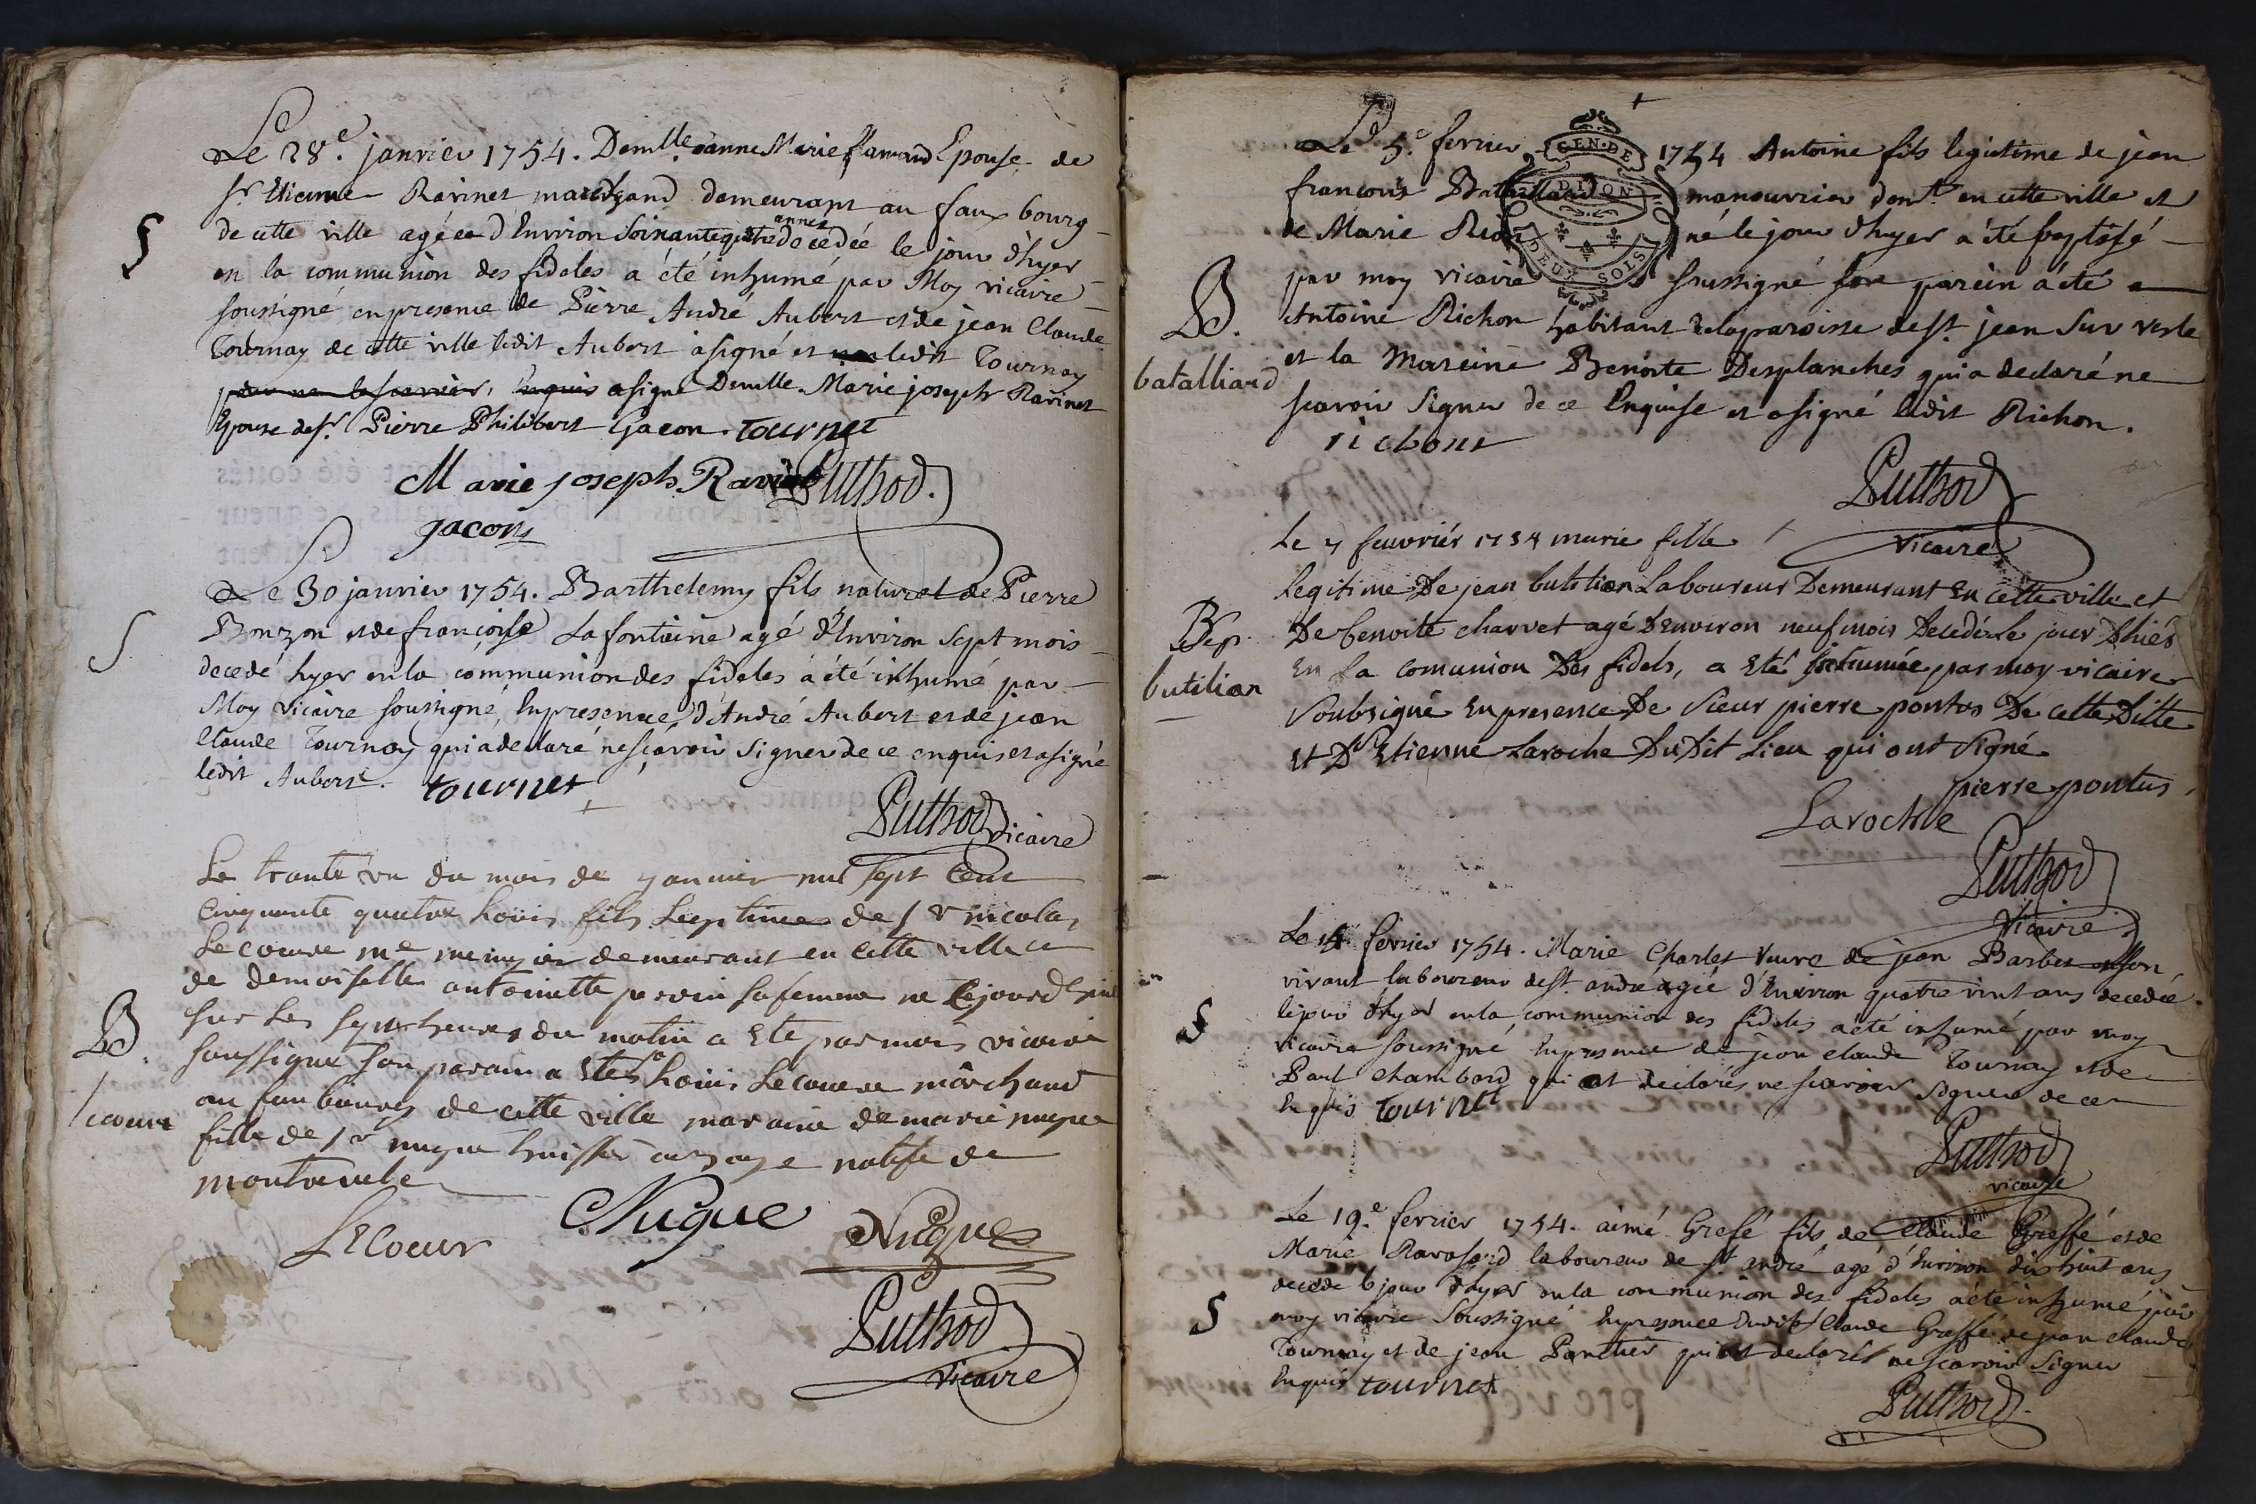 Le 28.e janvier 1754. Demlle. anne Marie flamand Epouse de
Sr. Etienne Ravinet marchand demeurant au faux bourg
§
de cette ville agée d'Environ soixante quatre années decedée le jour d'hyer
en la communion des fideles a été inhumé par Moy vicaire
soussigné en presence de Pierre André Aubert et de jean Claude
Tournay de cette ville ledit Aubert a signé et ledit Tournay
a signé Demlle. Marie joseph Ravinet
Epouse de Sr. Pierre Philibert Gacon. tournet
Marie joseph Ravinet Puthod.
gacon
Le 30 janvier 1754. Barthelemy fils naturel de Pierre
S
Bonzon et de francoise Lafontaine agé d'Environ Sept mois
decedé hyer en la communion des fideles a été inhumé par
Moy vicaire soussigné, En presence d'André Aubert et de jean
Claude Tournay qui a declaré ne sçavoir signer de ce enquis et a signé
ledit Aubert. tournet
Puthod vicaire
Le trante un du mois de janvier mil sept Cent
Cinquante quatre Loüis fils Legitime de Sr nicolas
Le coeure me menuzier demeurant en cette ville et
de demoiselle antoinette perrin sa femme ne Le jourd'huy
B.
sur Les sept heures du matin a Ete par mois vicaire
soussigne son parain a Ete Sr Loüis Lecoeure marchand
lecoeur
au faubourg de cette ville maraine de marie nuque
fille de Sr nuque huissier natife de
montrevele
LECoeur CNugue Nugue
Puthod
vicaire
Le 5.e fevrier 1754 Antoine fils legitime de jean
GEN. DE DIJON DEUX SOLS
francois Batalliard manouvrier demt. en cette ville et
de Marie Rion né le jour d'hyer a été baptisé
B.
par moy vicaire soussigné son parein a été
Antoine Richon habitant de la paroisse de St. jean sur vesle
batalliard
et la Mareine Benoite Desplanches qui a declaré ne
scavoir signer de ce Enquise et a signé ledit Richon.
richont
Puthod
vicaire
Le 7 feuvriér 1754 marie fille
legitime De jean butilion Laboureur Demeurant En cette ville et
Sep.
De benoite charvet agé D'environ neuf mois Decedé Le jour D'hiér
butilion
En la comunion Des fidels, a Eté inhumée par moy vicaire
soubsigné En presence De sieur pierre pontus De cette Ditte
et Sr Etienne Laroche Du Dit Lieu qui ont signé
pierre pontus
Laroche
Puthod
vicaire
Le fevrier 1754. Marie Charlet veuve de jean Barbet
vivant laboureur de St. andré agée d'Environ quatre vint ans decedée
§
le jour d'hyer en la communion des fideles a été inhumé par moy
vicaire soussigné En presence de jean claude Tournay et de
Paul Chambard qui ont declarés ne scavoir signer de ce
Enquis tournet
Puthod
vicaire
Le 19.e fevrier 1754. aimé Grefé fils de Claude Greffé et de
Marie Ravassard laboureur de St. andré agé d'Environ dix huit ans
decedé le jour d'hyer en la communion des fideles a été inhumé par
§
moy vicaire soussigné En presence dudit Claude Greffé de jean claude
Tournay et de jean Panetier qui ont declarés ne scavoir signer
Enquis tournet
Puthod.